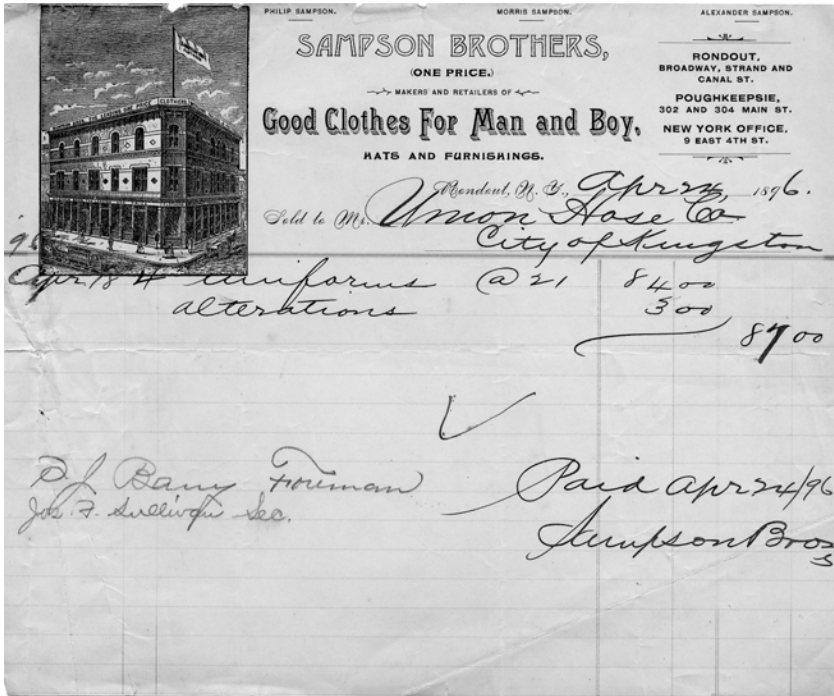 PHILIP SAMPSON. MORRIS SAMPSON. ALEXANDER SAMPSON.
SAMPSON BROTHERS,
(ONE PRICE.)
MAKERS AND RETAILERS OF
Good Clothes For Man and Boy,
HATS AND FURNISHINGS.
RONDOUT,
BROADWAY, STRAND AND
CANAL ST.
POUGHKEEPSIE,
302 AND 304 MAIN ST.
NEW YORK OFFICE,
9 EAST 4TH ST.
CLOTHIERS
Rondout, N. Y., Apr 24, 1896.
Sold to Mr. Union Hose Co
City of Kingston
'96
Apr 18 4 uniforms @ 21 84 00
alterations 3 00
87 00
Foreman
Jos F. Sullivan Sec.
Paid Apr 24/96
Sampson Bros